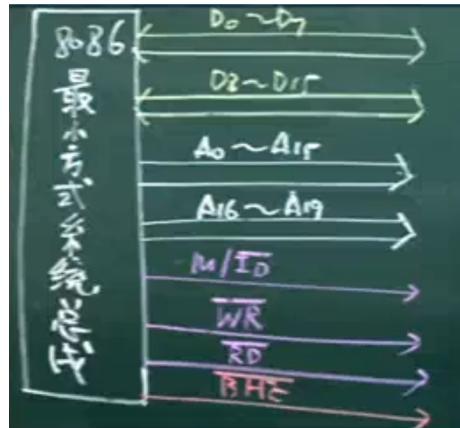 8086
最小方式系统总线
D₀～D₇
D8～D15
A₀～A₁₅
A₁₆～A₁₉
M/I̅O̅
W̅R̅
R̅D̅
B̅H̅E̅